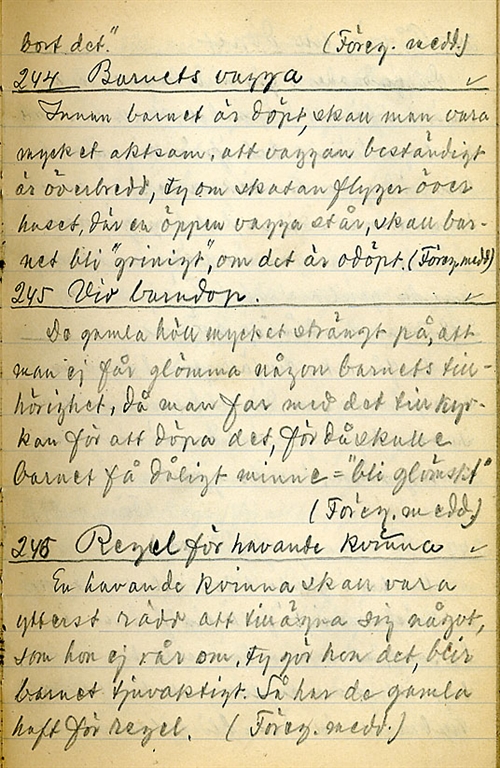 bort det." (Föreg. medd.)
244 Barnets vagga
Innan barnet är döpt, skall man vara
mycket aktsam, att vaggan beständigt
är överbredd, ty om skatan flyger över
huset, där en öppen vagga står, skall bar-
net bli "grinigt", om det är odöpt. (Föreg. medd)
245 Vid barndop.
De gamla höll mycket strängt på, att
man ej får glömma någon barnets till-
hörighet, då man far med det till kyr-
kan för att döpa det, för då skulle
barnet få dåligt minne = "bli glömskt"
(Föreg. medd.)
246 Regel för havande kvinna
En havande kvinna skall vara
ytterst rädd att tillägna sig något,
som hon ej rår om, ty gör hon det, blir
barnet tjuvaktigt. Så har de gamla
haft för regel. (Föreg. medd.)